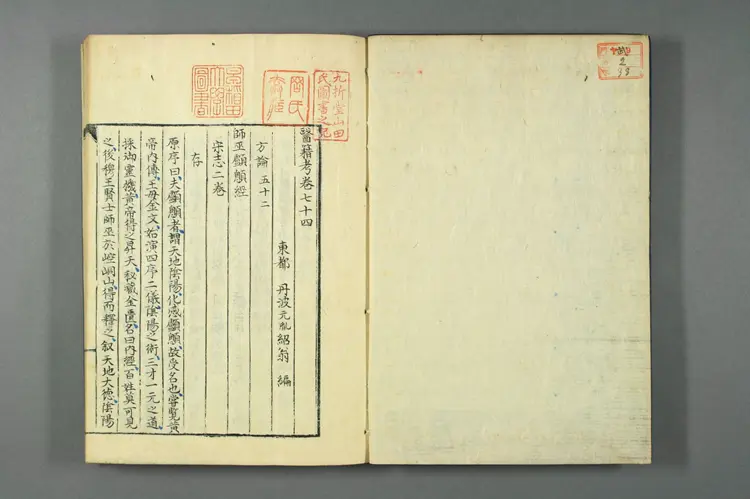 醫籍考卷七十四
東都 丹波元胤紹翁 編
方論五十二
師巫顱顖經
宋志二卷
存
原序曰、夫顱顖者、謂天地陰陽、化感顱顖、故受名也、嘗覽黃
帝內傳、王母金文、始演四序二儀、陰陽之術、三才一元之道、
採御靈機、黃帝得之昇天、秘藏金匱、名曰內經、百姓莫可見
之、後穆王賢士師巫於崆峒山、得而釋之、叙天地大德、陰陽
九折堂山田
氏圖書之記
早稻田
大學
圖書
2
99